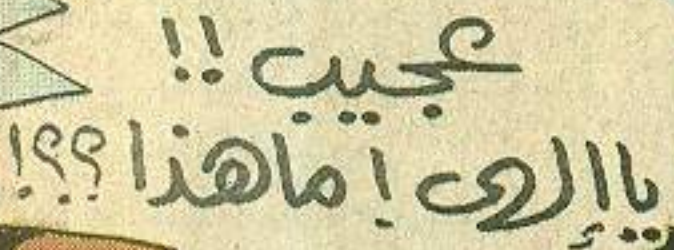 عجيب !!
يا إلهى ! ما هذا ؟؟!